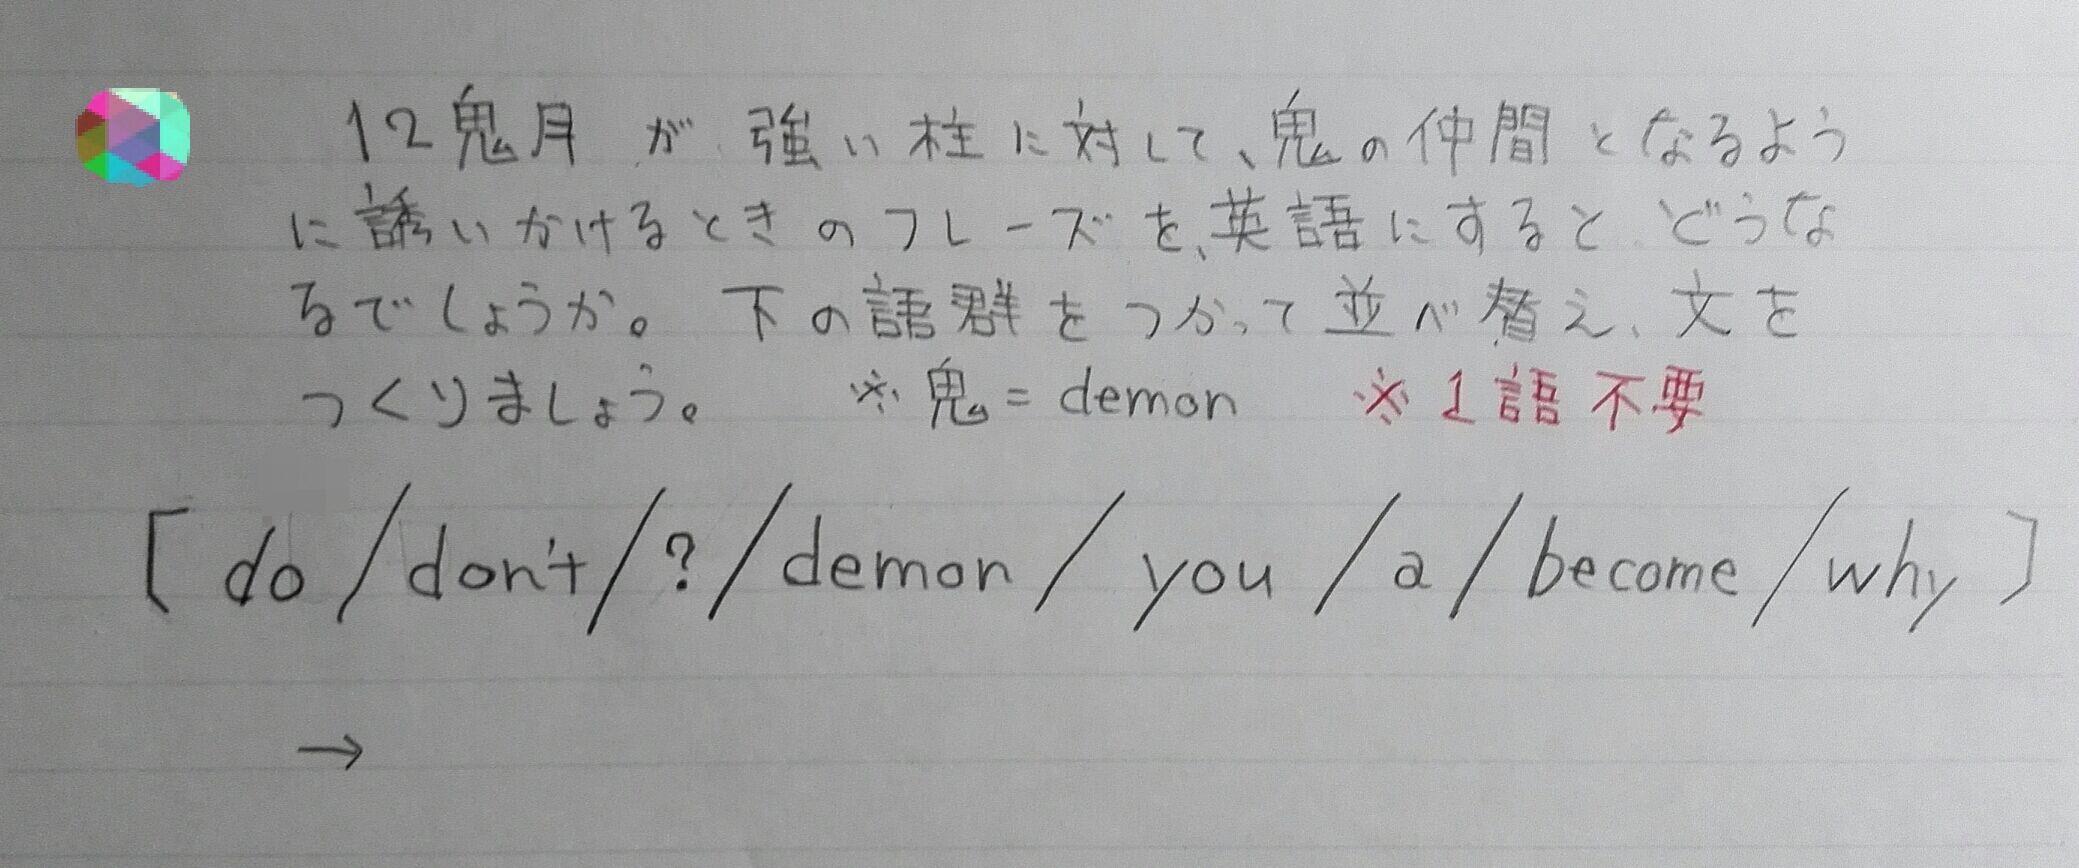 12鬼月が強い柱に対して、鬼の仲間となるよう
に誘いかけるときのフレーズを、英語にするとどうな
るでしょうか。下の語群をつかって並べ替え、文を
つくりましょう。 ※鬼=demon ※1語不要
[do/don't/?/demon/you/a/become/why]
→